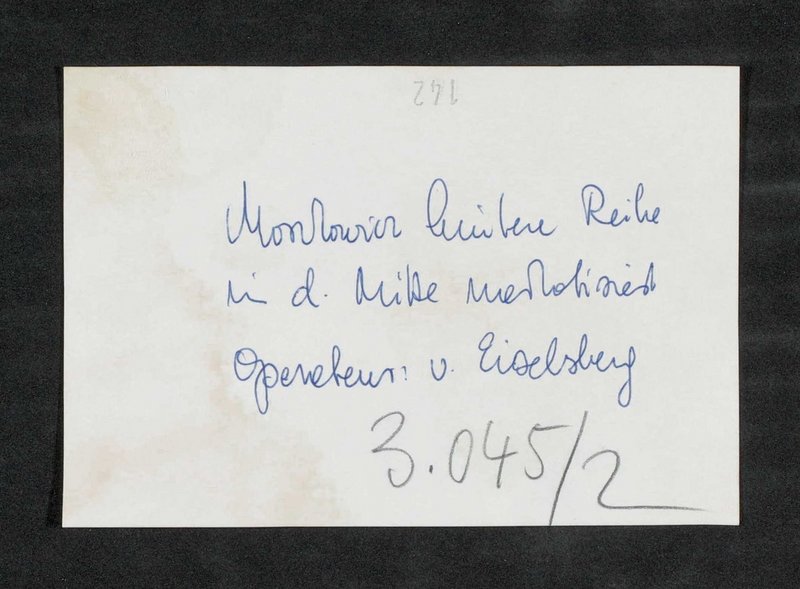 142
Moszkowicz hintere Reihe
in d. Mitte markiert
Operateur: v. Eiselsberg
3.045/2